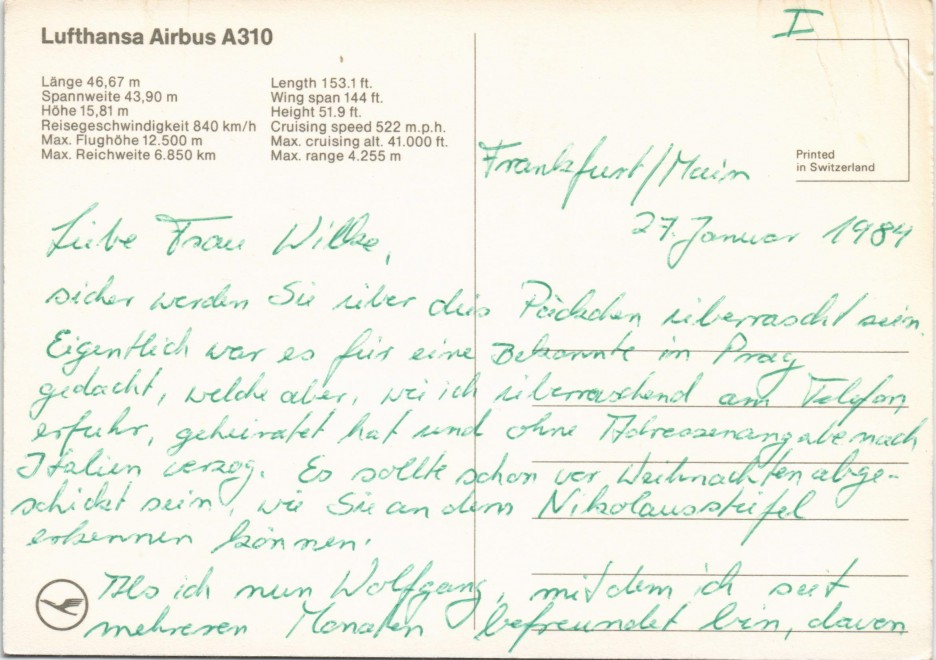 I
Lufthansa Airbus A310
Länge 46,67 m
Spannweite 43,90 m
Höhe 15,81 m
Reisegeschwindigkeit 840 km/h
Max. Flughöhe 12.500 m
Max. Reichweite 6.850 km
Length 153.1 ft.
Wing span 144 ft.
Height 51.9 ft.
Cruising speed 522 m.p.h.
Max. cruising alt. 41.000 ft.
Max. range 4.255 m
Printed
in Switzerland
Frankfurt/Main
27. Januar 1984
Liebe Frau Wilke,
sicher werden Sie über das Päckchen überrascht sein.
Eigentlich war es für eine Bekannte in Prag
gedacht, welche aber, wie ich überraschend am Telefon
erfuhr, geheiratet hat und ohne Adressenangabe nach
Italien verzog. Es sollte schon vor Weihnachten abge-
schickt sein, wie Sie an dem Nikolausstiefel
erkennen können.
Als ich nun Wolfgang, mit dem ich seit
mehreren Monaten befreundet bin, davon